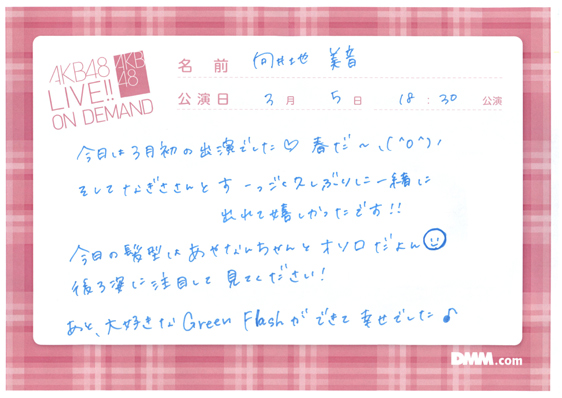 AKB48
LIVE!!
ON DEMAND
AKB
48
名前 向井地 美音
公演日 3月 5日 18:30 公演
今日は3月初の出演でした♡ 春だ〜\(^o^)/
そしてなぎささんとすーっごく久しぶりに一緒に
出れて嬉しかったです!!
今日の髪型はあやなんちゃんとオソロだよん☺
後ろ姿に注目して見てください!
あと、大好きなGreen Flashができて幸せでした♪
DMM.com